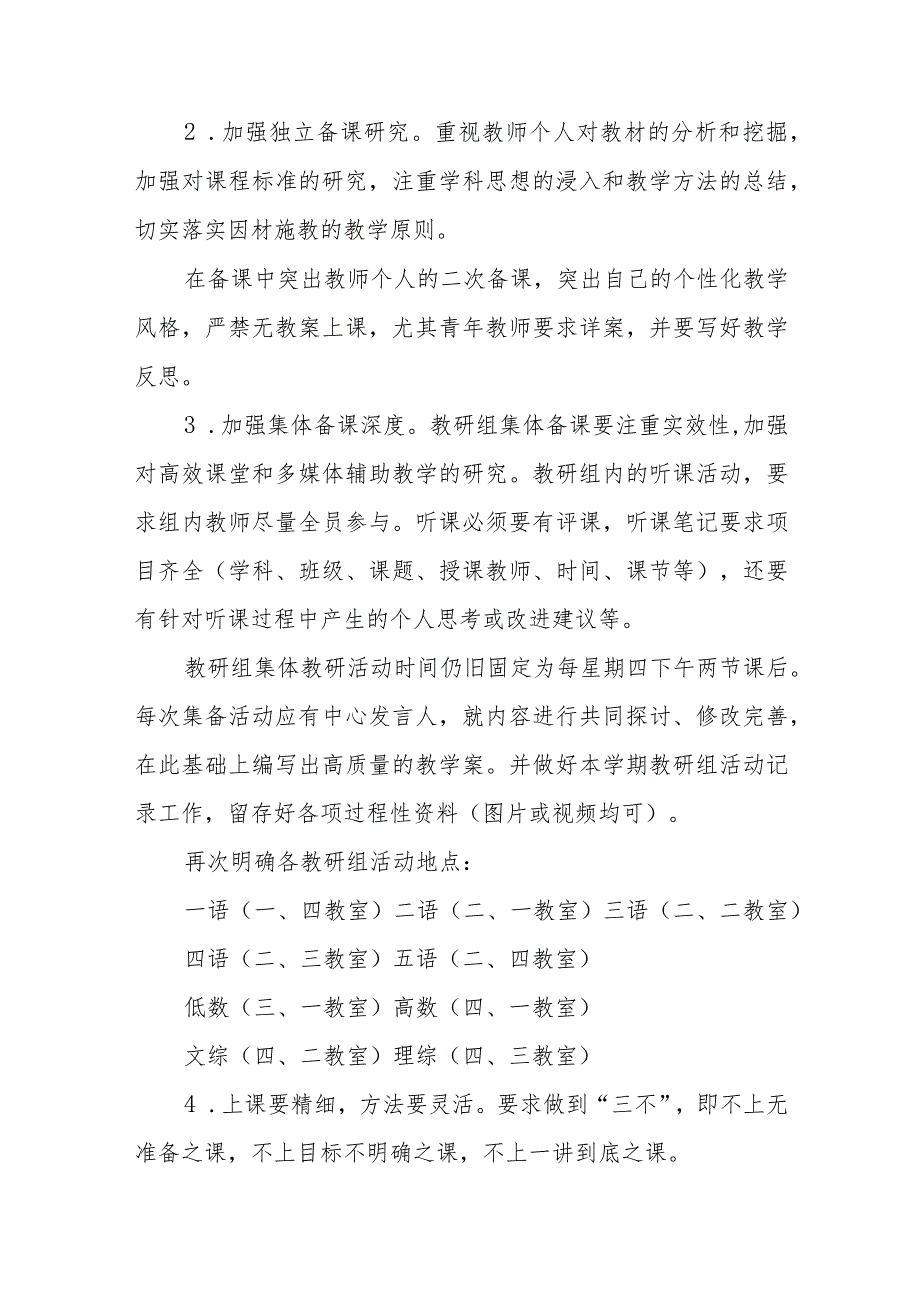 2 .加强独立备课研究。重视教师个人对教材的分析和挖掘，
加强对课程标准的研究，注重学科思想的浸入和教学方法的总结，
切实落实因材施教的教学原则。
在备课中突出教师个人的二次备课，突出自己的个性化教学
风格，严禁无教案上课，尤其青年教师要求详案，并要写好教学
反思。
3 .加强集体备课深度。教研组集体备课要注重实效性,加强
对高效课堂和多媒体辅助教学的研究。教研组内的听课活动，要
求组内教师尽量全员参与。听课必须要有评课，听课笔记要求项
目齐全（学科、班级、课题、授课教师、时间、课节等），还要
有针对听课过程中产生的个人思考或改进建议等。
教研组集体教研活动时间仍旧固定为每星期四下午两节课后。
每次集备活动应有中心发言人，就内容进行共同探讨、修改完善，
在此基础上编写出高质量的教学案。并做好本学期教研组活动记
录工作，留存好各项过程性资料（图片或视频均可）。
再次明确各教研组活动地点：
一语（一、四教室）二语（二、一教室）三语（二、二教室）
四语（二、三教室）五语（二、四教室）
低数（三、一教室）高数（四、一教室）
文综（四、二教室）理综（四、三教室）
4 .上课要精细，方法要灵活。要求做到“三不”，即不上无
准备之课，不上目标不明确之课，不上一讲到底之课。